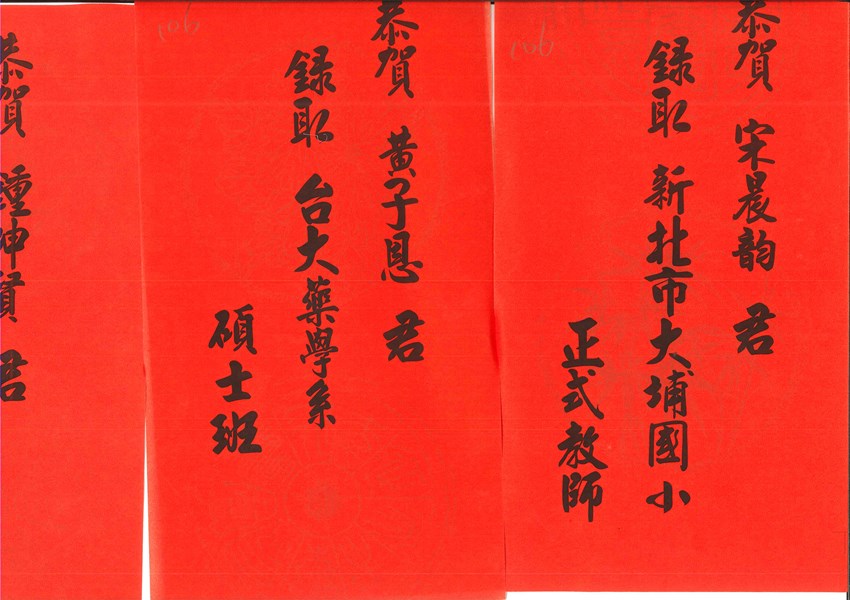 恭賀 宋晨韵 君
錄取 新北市大埔國小
正式教師
恭賀 黃子恩 君
錄取 台大藥學系
碩士班
恭賀 鍾坤賢 君
106
106